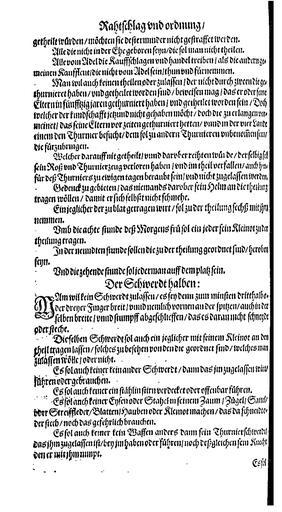 Rahtschlag vnd ordnung/
getheilt würden/möchten sie dester minder nicht gestraffet werden.
Alle die nicht in der Ehe geboren seyn/die sol man nicht theilen.
Alle vom Adel die Kauffschlagen vnd handel treiben/als die andern ge-
meinen Kauffleut/die nicht vom Adel sein/thun vnd fürnemmen.
Man wil auch keinen theilen oder zulassen/der nicht durch zween die ge-
thurnieret haben/vnd getheilet worden sind/beweisen mag/das er oder seine
Eltern in fünfftzig jaren gethurniert haben/vnd getheilet worden sein/Doch
welcher der kundtschafft jetzund nicht gehaben möcht/doch die zu erlangen ver-
meinet/das seine Eltern vor zeiten gethurniert hetten/vnd in der vier Lande
einem den Thurnier besucht/dem sol zu andern Thurnieren vnbenommen sein/
die fürzubringen.
Welcher darauff mit getheilt/vnnd darüber reihten würde/der selbig sol
sein Roß vnd Thurnierzeug verloren haben/vnd im theil verfallen/auch hin-
für deß Thurniers zu ewigen tagen beraubt sein/vnd nicht zugelassen werden.
Gedenck zu gebieten/das niemands darober sein Helm an die theilung
tragen wöllen/damit er sich selbst nicht schmehe.
Ein jeglicher der zu blat getragen wirt/sol zu der theilung sechß mit jm
nemmen.
Vmb die achte stunde deß Morgens frü sol ein jeder sein Kleinot zu der
theilung tragen.
In der neundten stunde sollen die zu der theilung geordnet sind/herober
seyn.
Vnd die zehende stunde sol jederman auff dem platz sein.
Der Schwerdt halben:
MAn wil kein Schwerdt zulassen/es sey denn zum minsten dritthalb-
oder dreyer Finger breit/vnnd nemlich vornen an der spitzen/auch in der-
selben breite/vnnd stumpff abgeschliffen/das es daran nicht schneide
oder steche.
Dieselben Schwerdt sol auch ein jeglicher mit seinem Kleinot an den
theil tragen lassen/solches zu besehen von den die geordnet sind/welches man
zulassen wölle/oder nicht.
Es sol auch keiner kein ander Schwerdt/dann das jm zugelassen wirt
führen oder gebrauchen.
Es sol auch keiner ein stählin stirn verdeckt oder offenbar führen.
Es sol auch keiner Eysen oder Stahel in seinem Zaum/Zügel/Sattel
oder Streiffleder/Blatten/Hauben oder Kleinot machen/das da schneide
der stech/noch das gefehrlich brauchen.
Es sol auch keiner kein Waffen anders dann sein Thurnierschwerdt
das jhm zugelassen ist/bey jm haben oder führen/noch deßgleichen sein Knecht
den er mit jhm nimpt.
Es sol